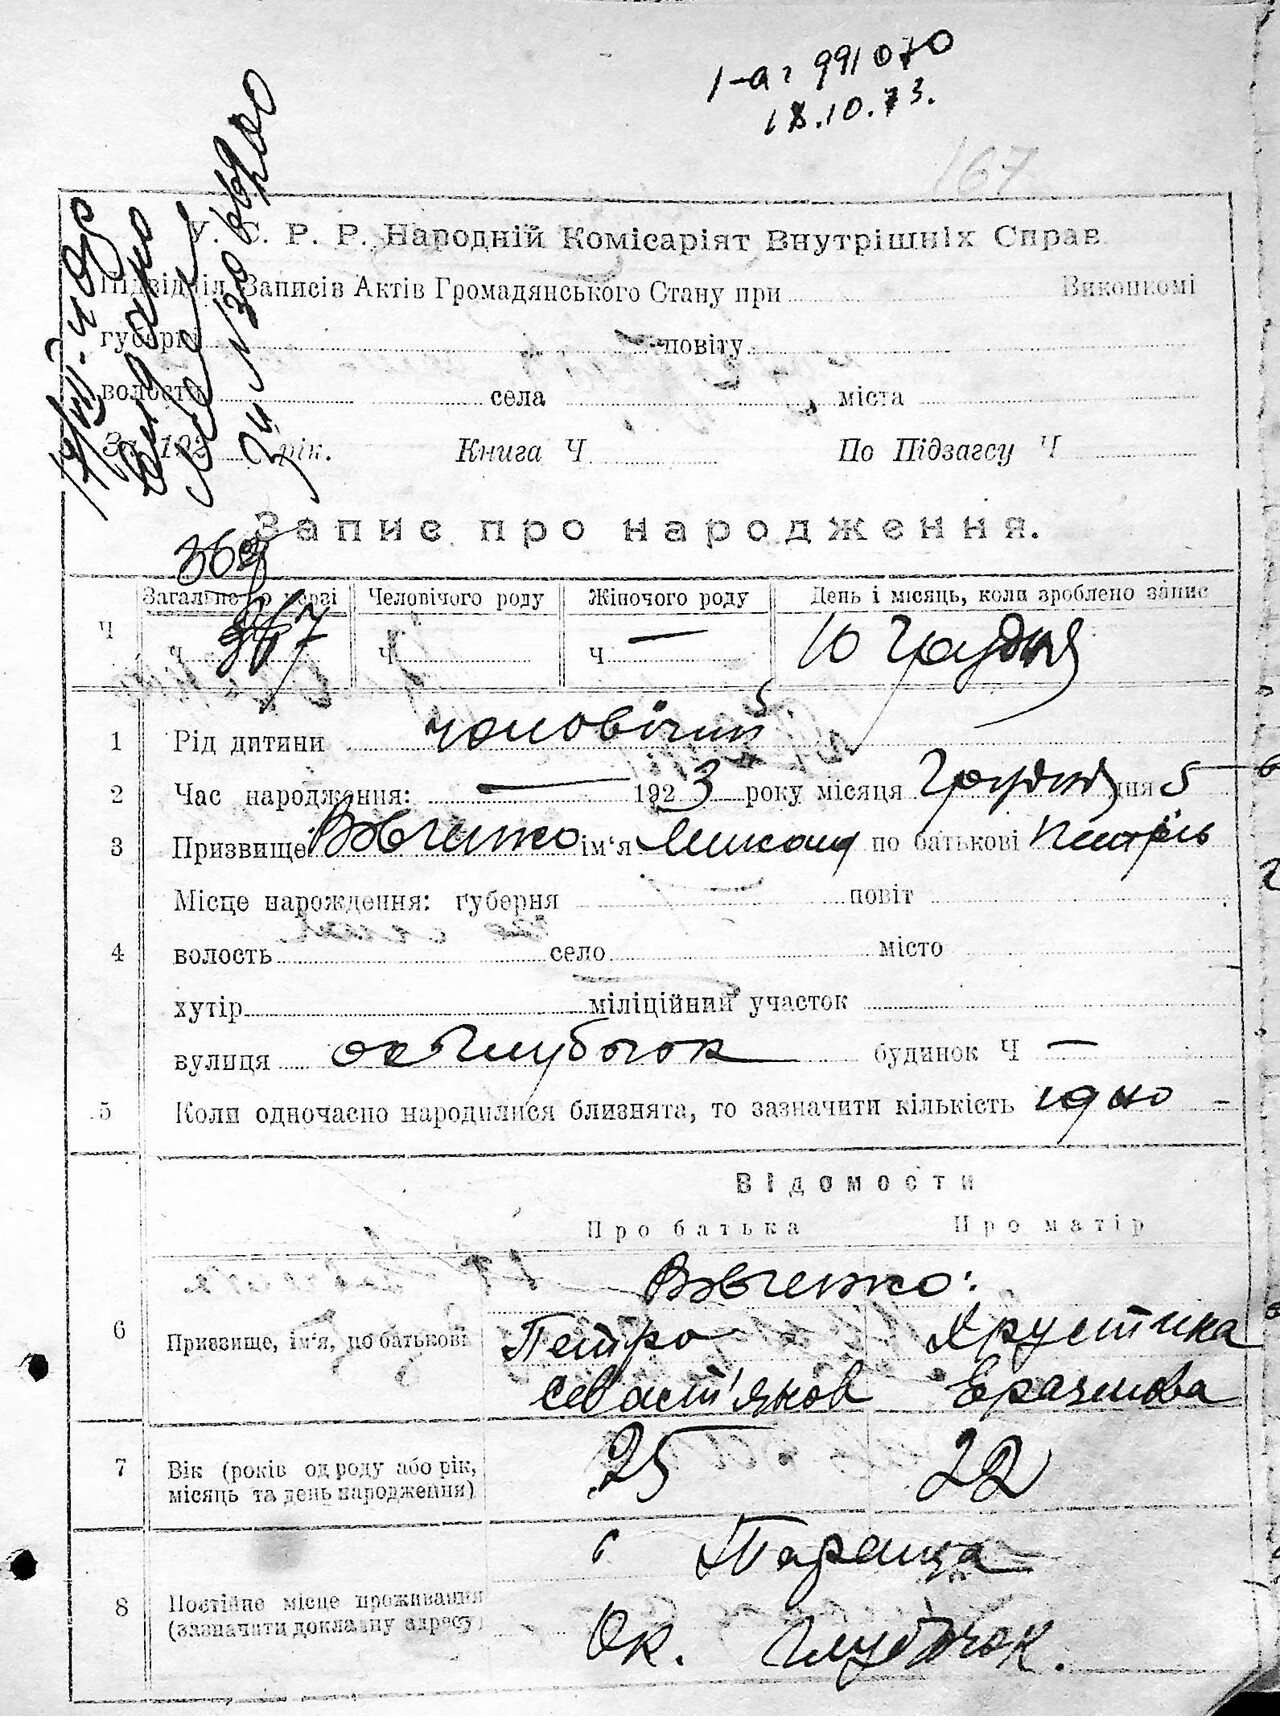 1-а: 991070
18.10.73.
167
У. С. Р. Р. Народній Комісаріят Внутрішніх Справ
Підвідділ Записів Актів Громадянського Стану при Виконкомі
губерні повіту
волости села міста
За 192 рік. Книга Ч По Підзагсу Ч
Запис про народження.
368
Ч Загальне по черзі Человічого роду Жіночого роду День і місяць, коли зроблено запис
Ч 367 Ч Ч — 10 Грудня
1 Рід дитини чоловічий
2 Час народження: — 1923 року місяця Грудня дня 5
3 Призвище Вовченко ім'я Микола по батькові Петрів
Місце народження: губерня повіт
4 волость село місто
хутір міліційний участок
вулиця ок Глубочок будинок Ч —
5 Коли одночасно народилися близнята, то зазначити кількість одно
Відомости
Про батька Про матір
Вовченко:
6 Призвище, ім'я, по батькові Петро Хрустина
Севаст'янов Еразмова
7 Вік (років од роду або рік, місяць та день народження) 25 22
с Тараща
8 Постійне місце проживання (зазначати докладну адресу)
Ок. Глубочок.